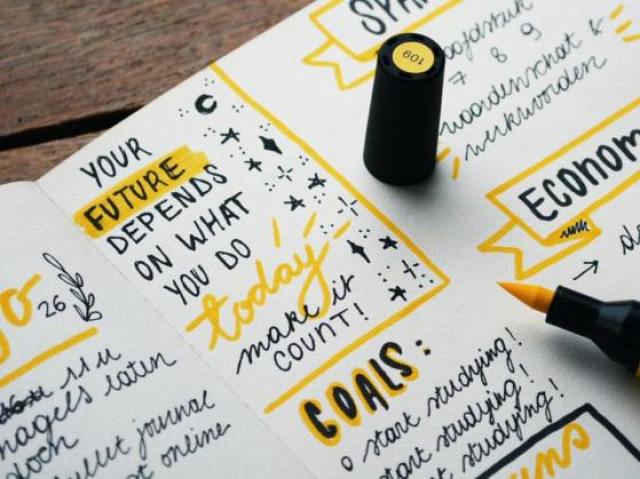 YOUR
FUTURE
DEPENDS
ON WHAT
YOU DO
today
make it
COUNT!
GOALS:
o start studying!
start studying!
start studying!
26
11 u
nagels laten
doch
bullet journal
online
109
7 8 9
woordenschat &
werkwoorden
ECONOM